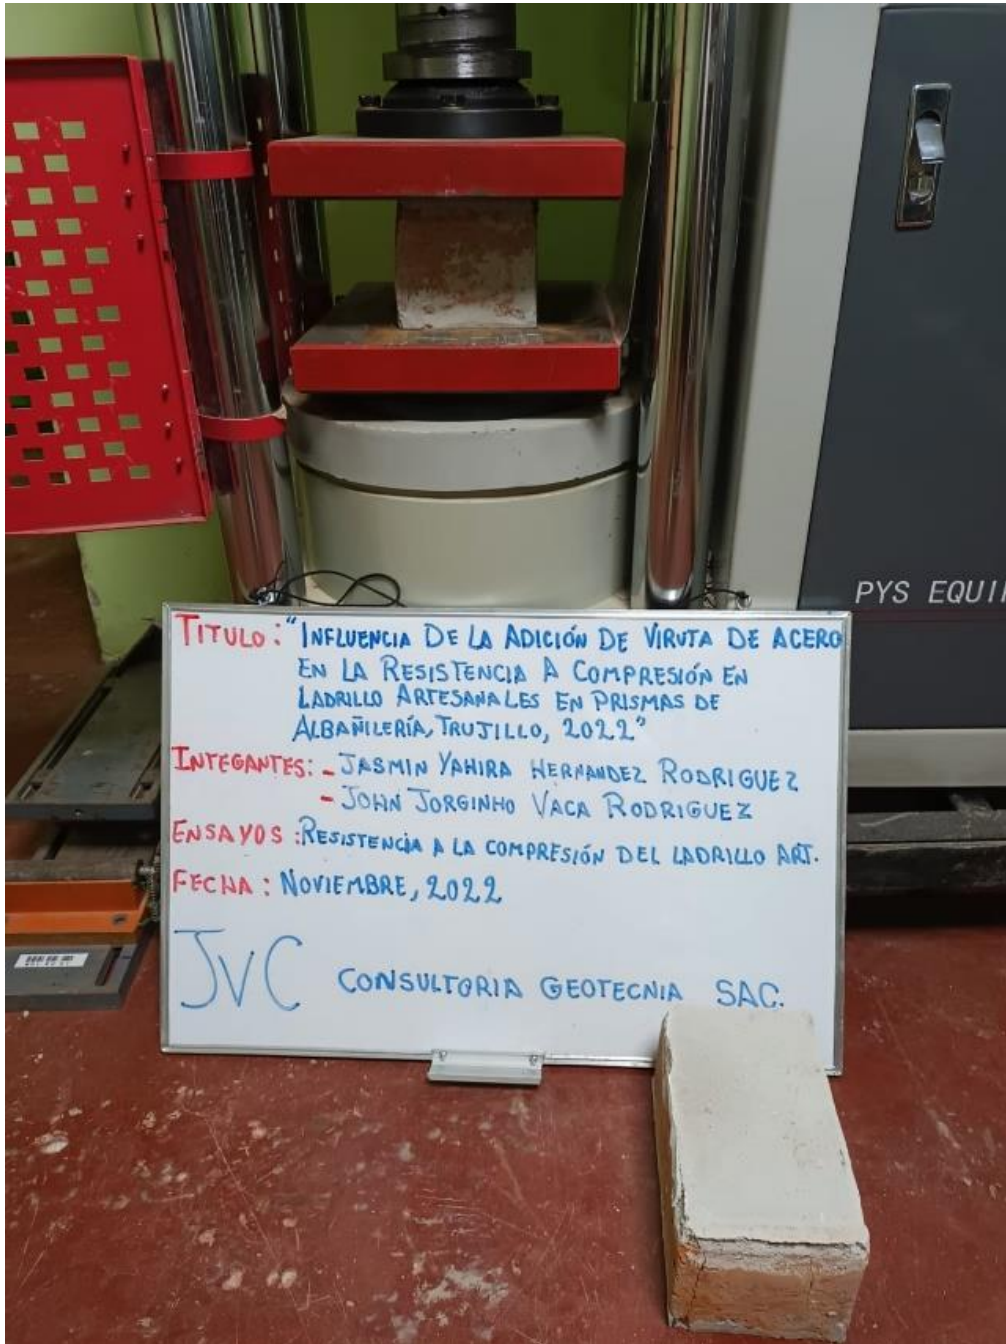 PYS EQUI
TITULO: "INFLUENCIA DE LA ADICIÓN DE VIRUTA DE ACERO
EN LA RESISTENCIA A COMPRESIÓN EN
LADRILLO ARTESANALES EN PRISMAS DE
ALBAÑILERÍA, TRUJILLO, 2022"
INTEGANTES: - JASMIN YAHIRA HERNANDEZ RODRIGUEZ
- JOHN JORGINHO VACA RODRIGUEZ
ENSAYOS: RESISTENCIA A LA COMPRESIÓN DEL LADRILLO ART.
FECHA: NOVIEMBRE, 2022
JVC CONSULTORIA GEOTECNIA SAC.